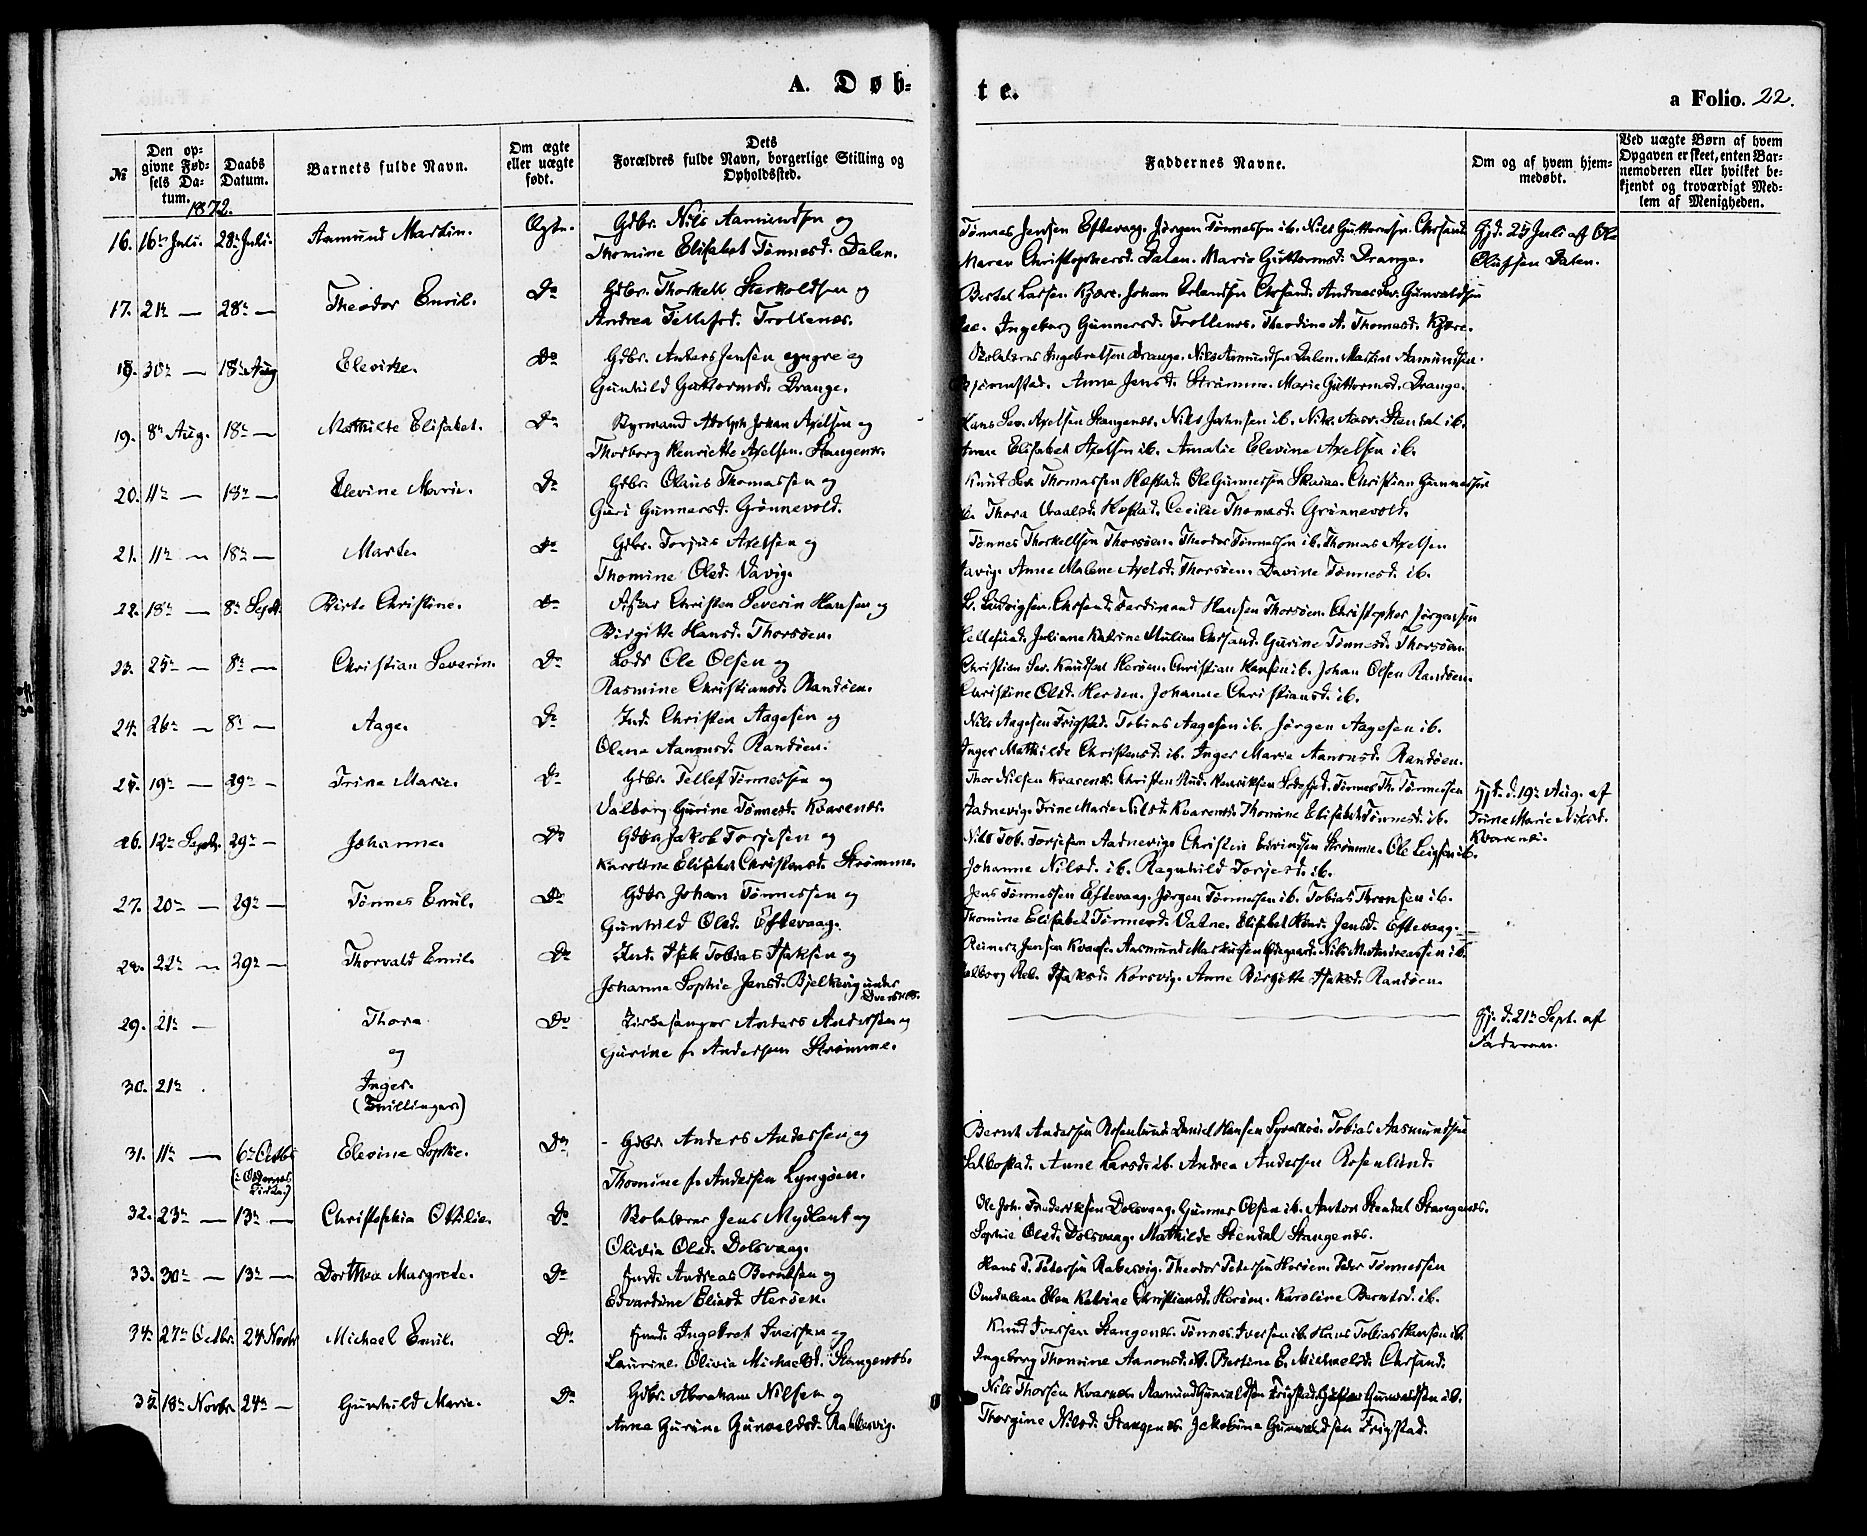 A. Døb-
te.
a Folio. 22.
№
Den op-
givne Fød-
sels Da-
tum.
1872.
Daabs
Datum.
Barnets fulde Navn.
Om ægte
eller uægte
født.
Dets
Forældres fulde Navn, borgerlige Stilling og
Opholdssted.
Faddernes Navne.
Om og af hvem hjem-
medøbt.
Ved uægte Børn af hvem
Opgaven er skeet, enten Bar-
nemoderen eller hvilket be-
kjendt og troværdigt Med-
lem af Menigheden.
16. 16de Juli. 28de Juli. Aamund Martin. Ægte. Gdbr. Nils Aamundsen og
Thomine Elisabet Tønnesd. Dalen.
Tønnes Jensen Eftevaag. Jørgen Tønnessen ib. Nils Guttormsen. Chrsand
Maren Christophersd. Dalen. Marie Guttormsd. Drange.
Hjd. 25 Juli af Ole
Olufsen Dalen.
17. 21de — 28de — Theodor Emil. Do Gdbr. Thorkell Sterkoldsen og
Andrea Tellefsd. Trollenes.
Bertel Larsen Kjære. Johan Erlandsen Chrsand. Andreas Sev. Gunvaldsen
Ingeborg Gunnersd. Trollenes. Theodine A. Thomasd. Kjære.
18. 30te — 18de Aug Elevine. Do Gdbr. Anders Jensen yngre og
Gunhild Guttormsd. Drange.
Skolelærer Ingebretsen Drange. Nils Aamundsen Dalen. Martin Aamundsen
Anne Jensd. Strømme. Marie Guttormsd. Drange.
19. 8de Aug. 18de — Mathilde Elisabet. Do Styrmand Adolph Johan Axelsen og
Thorborg Henriette Axelsen. Stangenes.
Hans Sev. Axelsen Stangenes. Nils Jahnsen ib. Nils Aasv. Stendal ib.
Elisabet Axelsen ib. Amalie Elevine Axelsen ib.
20. 11te — 18de — Elevine Marie. Do Gdbr. Olaus Thomassen og
Guri Gunnersd. Grønnevold.
Knud Sev. Thomassen Kostad. Ole Gunnersen Skaaa. Christian Gunnersen
Thora Oraalsd. Kostad. Cecilie Thomasd. Grønnevold.
21. 11te — 18de — Marte. Do Gdbr. Torjus Axelsen og
Thomine Olsd. Vavig.
Tønnes Thorkellsen Thorsøen. Theodor Tønnessen ib. Thomas Axelsen
Vavig. Anne Malene Axelsd. Thorsøen. Davine Tønnesd. ib.
22. 18de — 8de Sept. Birte Christine. Do Christen Severin Hansen og
Birgitte Hansd. Thorsøen.
L. Ludvigsen. Chrsand. Ferdinand Hansen Thorsøen. Christopher Jørgensen
Juliane Katrine Chrsand. Gurine Tønnesd. Thorsøen.
23. 25de — 8de — Christian Severin. Do Lods Ole Olsen og
Rasmine Christiansd. Randøen.
Christian Sev. Knudsen Herøen. Christian Hansen ib. Johan Olsen Randøen.
Christine Olsd. Herøen. Johanne Christiansd. ib.
24. 26de — 8de — Aage. Do Ind. Christen Aagesen og
Olena Aanonsd. Randøen.
Nils Aagesen Frigstad. Tobias Aagesen ib. Jørgen Aagesen ib.
Inger Mathilde Christensd. ib. Inger Marie Aanonsd. Randøen.
25. 19de — 29de — Trine Marie. Do Gdbr. Tellef Tønnessen og
Valborg Gurine Tønnesd. Kvarenes.
Thor Nilsen Kvarenes. Christen Rud. Henriksen Tønnes Th. Tønnessen
Aadnevig. Trine Marie Nilsd. Kvarenes. Thomine Elisabet Tønnesd. ib.
Hjd. d. 19de Aug. af
Trine Marie Nilsd.
Kvarenes.
26. 12te Septb. 29de — Johanne. Do Gdbr. Jakob Torjesen og
Karoline Elisabet Christensd. Strømme.
Nils Tob. Torjesen Aadnevig. Christen Strømme. Ole Leifsen ib.
Johanne Nilsd. ib. Ragnhild Torjesd. ib.
27. 20de — 29de — Tønnes Emil. Do Gdbr. Johan Tønnessen og
Gunhild Olsd. Eftevaag.
Jens Tønnessen Eftevaag. Jørgen Tønnessen ib. Tobias Thronsen ib.
Thomine Elisabet Tønnesd. Vatne. Elisabet Jensd. Eftevaag.
28. 22de — 29de — Thorvald Emil. Do Ind. Isak Tobias Isaksen og
Johanne Sophie Jensd. Bjelkevig under
Dversnes.
Reinert Jensen Kvaase. Aasmund Markusen Nils M. Andreassen ib.
Valborg Reb. Isaksd. Korsvig. Anne Birgitte Isaksd. Randøen.
29. 21de — Thora Do Kirkesanger Anders Andersen og
og Gurine f. Andersen Strømme.
Hj. d. 21de Sept. af
Faderen.
30. 21de Inger.
(Tvillinger)
31. 11te — 6te Octbr Elevine Sophie. Do Gdbr. Anders Andersen og
(i Oddernes
Kirken)
Thomine f. Andersen Lyngøen.
Bernt Andersen Rosenlund. Daniel Hansen Tobias Aasmundsen
Anne Larsd. ib. Andrea Andersen Rosenlund.
32. 23de — 13de — Christophia Othilie. Do Skolelærer Jens Mydlant og
Olivia Olsd. Dolsvaag.
Ole Joh. Frederiksen Dolsvaag. Gunner Olsen ib. Anton Stendal Stangenes.
Sophie Olsd. Dolsvaag. Mathilde Stendal Stangenes.
33. 30te — 13de — Dorthea Margrete. Do Ind. Andreas Berntsen og
Edvardine Eliasd. Herøen.
Hans P. Petersen Rabersvig. Theodor Petersen Herøen. Peder Tønnessen
Omdalen. Elen Katrine Christiansd. Herøen. Karoline Berntsd. ib.
34. 27de Octbr. 24 Novbr Michael Emil. Do Ind. Ingebret Iversen og
Laurine Olivia Michaelsd. Stangenes.
Knud Iversen Stangenes. Tønnes Iversen ib. Hans Tobias Hansen ib.
Ingeborg Thomine Aanonsd. ib. Bertine E. Michaelsd. Chrsand.
35 18de Novbr 24de — Gunhild Marie. Do Gdbr. Abraham Nilsen og
Anne Gurine Gunvaldsd. Rabbersvig.
Nils Thorsen Kvarenes. Aasmund Gunvaldsen Frigstad. Gunvaldsen ib.
Thorgine Nilsd. Stangenes. Jakobine Gunvaldsen Frigstad.